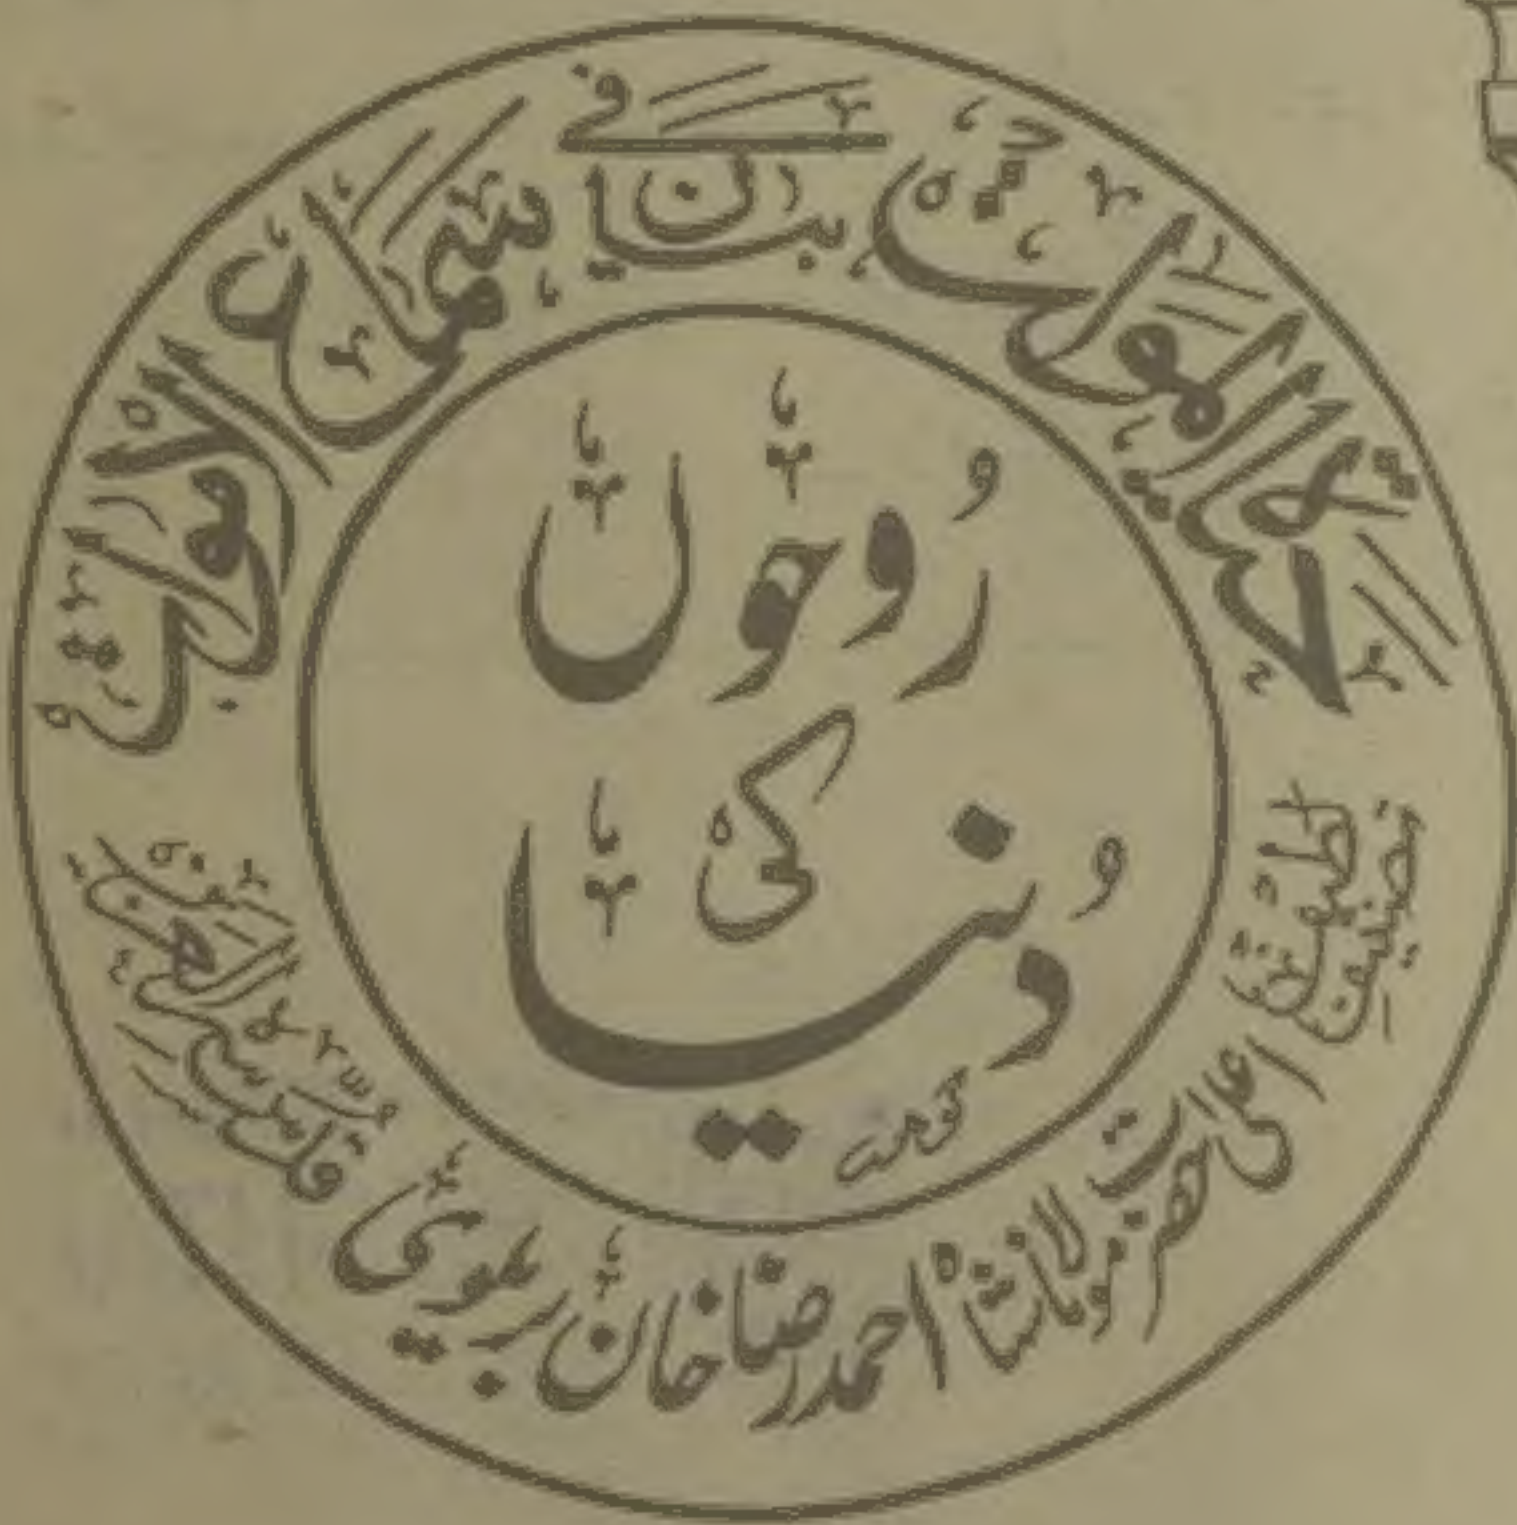 حیاۃ الموات فی بیان سماع الاموات
روحوں
کی
دنیا
تصنیف لطیف
اعلیٰ حضرت مولانا شاہ احمد رضا خان بریلوی قدس سرہ العزیز